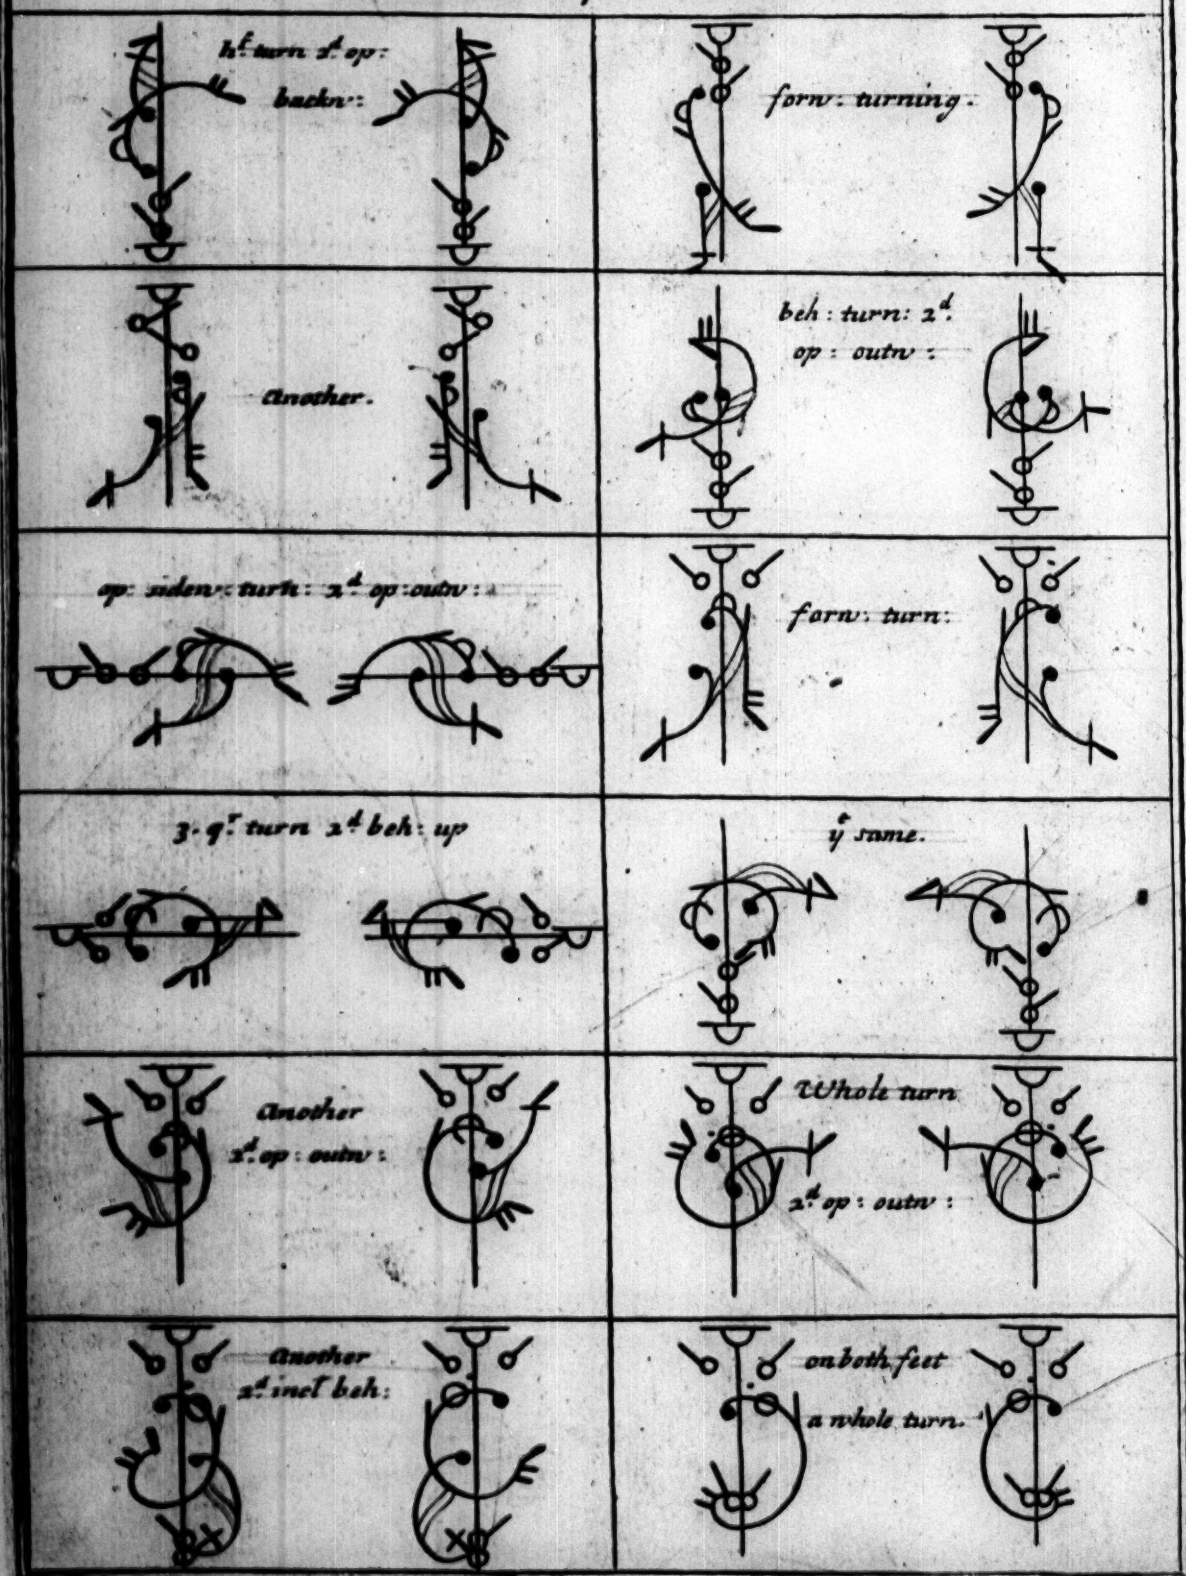 hf turn 2d op:
backw:
forw: turning.
Another.
beh: turn: 2d
op: outw:
op: sidew: turn: 2d op: outw:
forw: turn:
3. qr turn 2d beh: up
ye same.
Another
2d op: outw:
Whole turn
2d op: outw:
Another
2d incl beh:
on both feet
a whole turn.